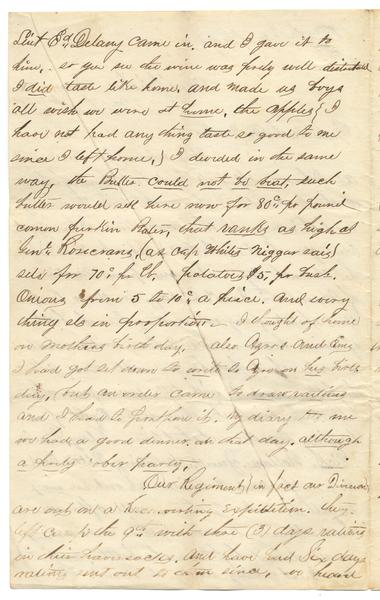 Lieut Ed. Delany came in, and I gave it to
him, so you see the wine was prety well distributed
I did taste like home, and made us boys
all wish we were at home, the apples (I
have not had any thing taste so good to me
since I left home,) I devided in the same
way, the Butter could not be beat, such
butter would sell here now for 80cts pr pound
comon furkin Rolen, that ranks as high as
Genl. Rosecrans, (as Cap Whites Niggar said)
sells for 70cts pr lb, potatoes $5, pr bush.
Onions from 5 to 10cts a piece. And every
thing els in proportion – I thought of home
on Mothers birth day, also Agnes and Ems
I had got set down to write to on his birth
day, (but an order came to draw rations
and I had to posthon it. my diary tells me
we had a good dinner, on that day. although
a prety sober party.
Our Regiment, in fact our Division
are out on a Reconnoitering Expedition. they
left camp the 9th with three (3) days rations
in their haversacks. And have had Six days
rations sent out to them since, we heard